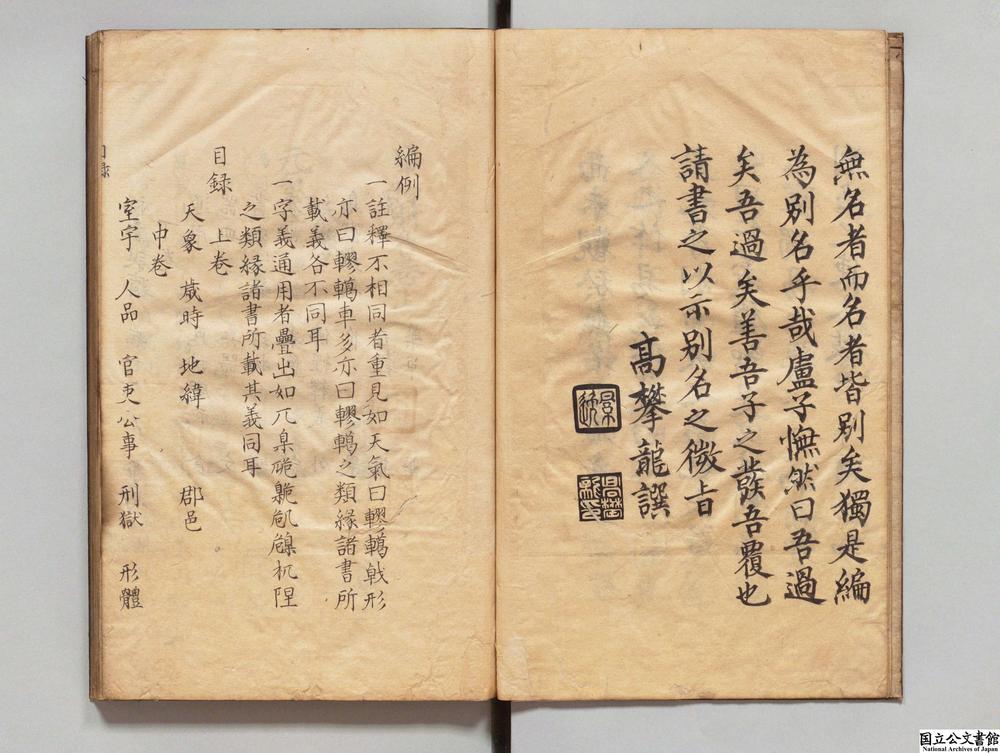 無名者而名者皆别矣獨是編
為别名乎哉盧子憮然曰吾過
矣吾過矣善吾子之發吾覆也
請書之以示别名之微旨
高攀龍譔
編例
一註釋不相同者重見如天氣曰轇轕戟形
亦曰轇轕車多亦曰轇轕之類緣諸書所
載義各不同耳
一字義通用者疊出如兀臬硊臲卼𡰈杌隉
之類緣諸書所載其義同耳
目録
上卷
天象 歲時 地緯 郡邑
中卷
室宇 人品 官吏 公事 刑獄 形體
目録
国立公文書館
National Archives of Japan